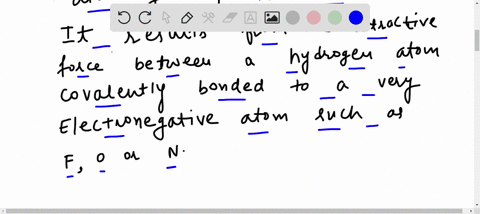 It results
force between a hydrogen atom
covalently bonded to a very
Electronegative atom such as
F, O or N.